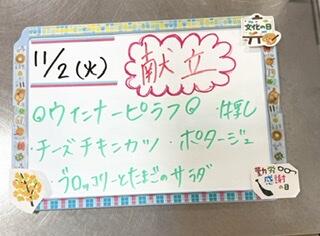 文化の日
11/2(火) 献立
◎ウィンナーピラフ◎ ・梨
・チーズチキンカツ ・ポタージュ
ブロッコリーとたまごのサラダ
勤労感謝の日